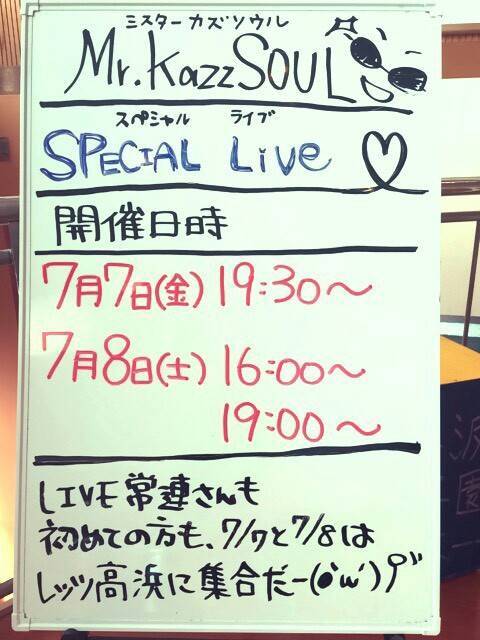 ミスターカズソウル
Mr.KazzSOUL
スペシャル ライブ
SPECIAL Live ♡
開催日時
7月7日(金) 19:30〜
7月8日(土) 16:00〜
19:00〜
LIVE常連さんも
初めての方も、7/7と7/8は
レッツ高浜に集合だー(o'ω')ﾉﾞ